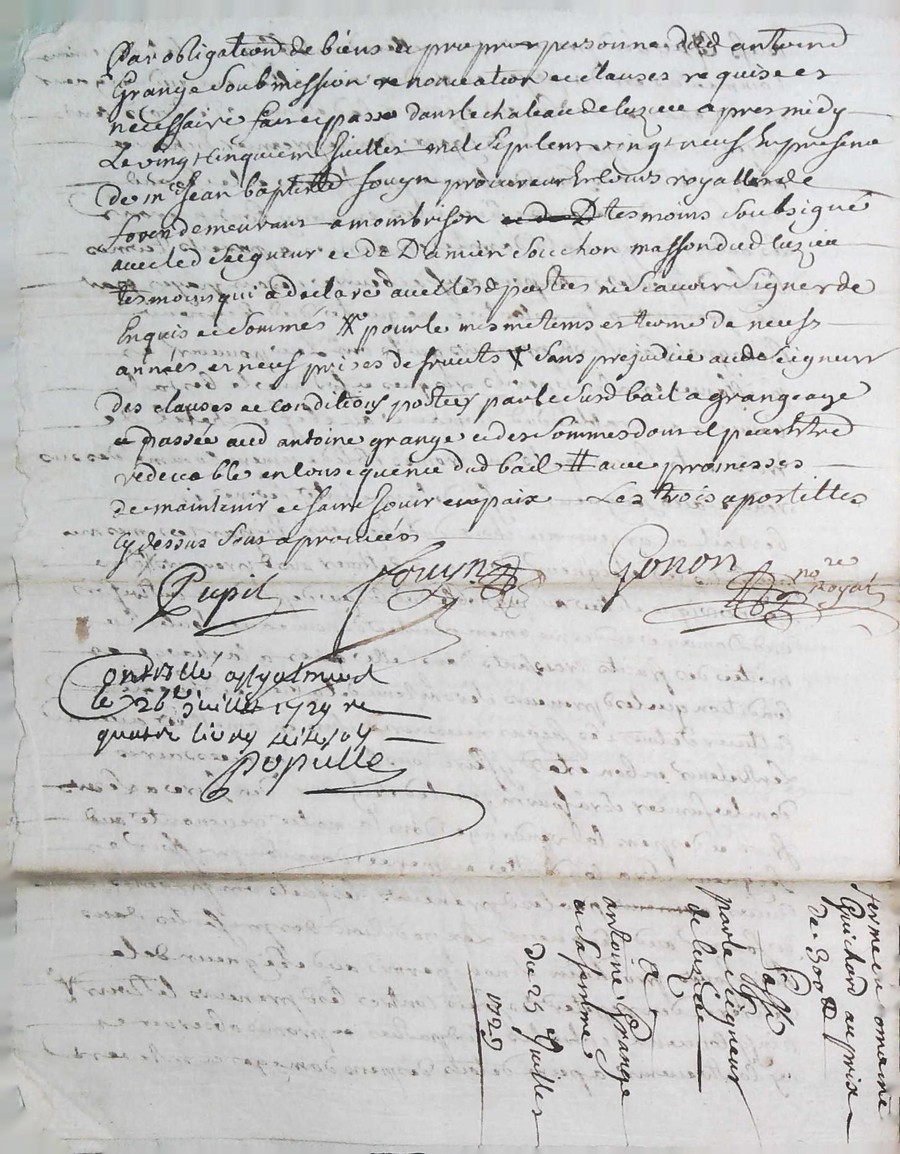 Par obligation de biens et propre personne dud antoine
Grange Soubmission renonciation et clauses requises et
necessaire fait et passé dans le chateau de luzieu apres midy
Le vingt cinquieme juillet mil sept cent vingt neuf En presence
De me Jean baptiste Jouyn procureur Es cours royalles de
forez demeurant a mombrison tesmoins Soubsigné
avec led Seigneur et de Damien Souchon masson dud luzieu
tesmoins qui a declaré avec lesd parties ne Scavoir Signer de
Enquis et Sommés # pour le mesme tems et terme de neuf
années et neuf prises de fruits X Sans prejudice aud Seigneur
Des clauses et conditions portées par le Susd bail a grangeage
passée aud antoine grange et des Sommes dont il peut Etre
redevable en consequence dud bail # avec promesses
de maintenir et faire jouir en paix Les trois apostilles
Cy dessus Sont aprouvées
Pupil Jouyn Gonon nore
Royal
Controllé a St galmier
le 26e Juillet 1729 re
quatre livres
Populle
ferme en
Guichard au prix
de 300
Passé
par le seigneur
de luzieu
A
antoine Grange
et Sa femme
Du 25 Juillet
1729